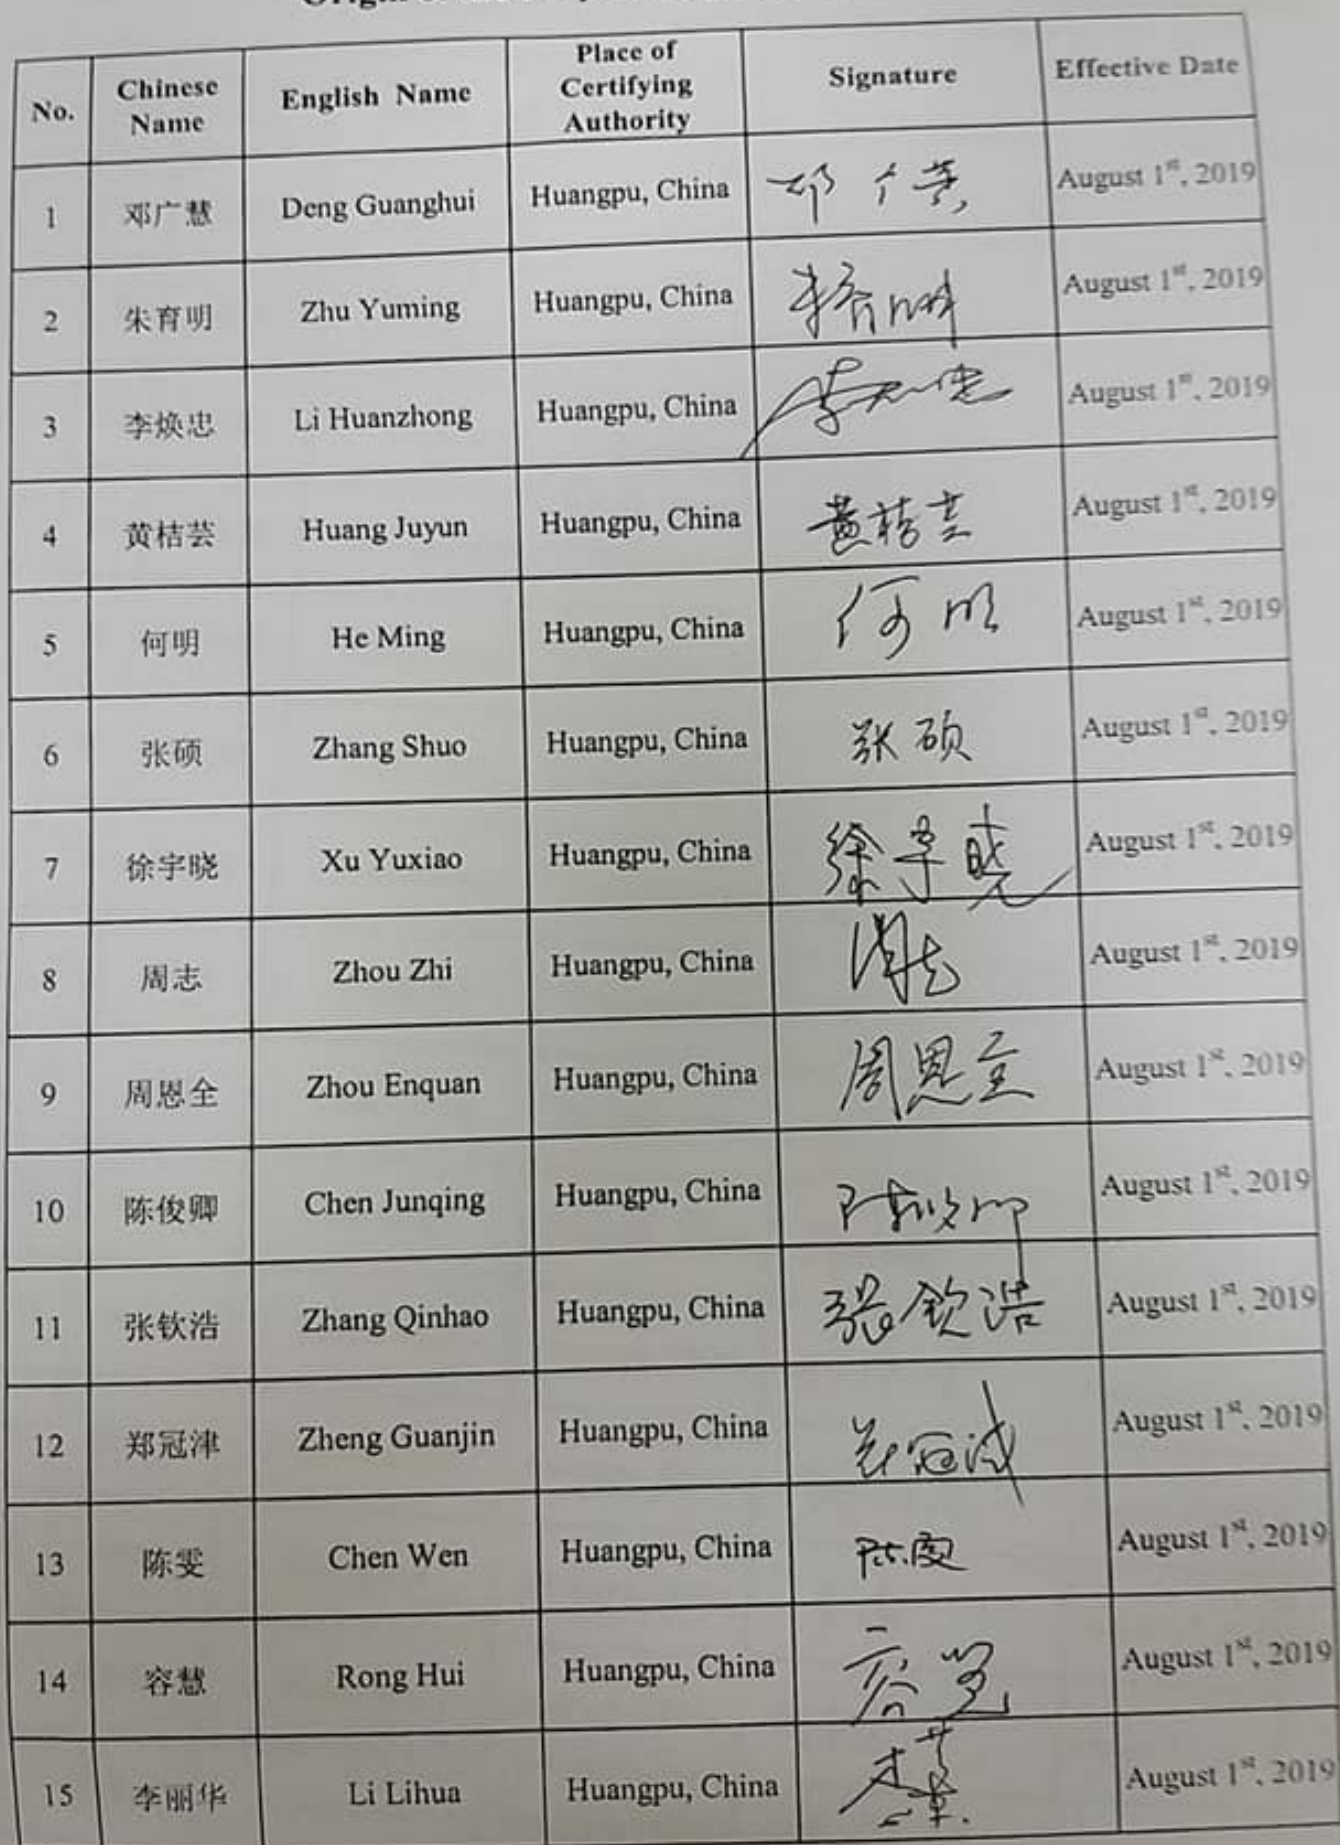 No. Chinese Name English Name Place of Certifying Authority Signature Effective Date
1 邓广慧 Deng Guanghui Huangpu, China August 1st, 2019
2 朱育明 Zhu Yuming Huangpu, China August 1st, 2019
3 李焕忠 Li Huanzhong Huangpu, China August 1st, 2019
4 黄桔芸 Huang Juyun Huangpu, China 黄桔芸 August 1st, 2019
5 何明 He Ming Huangpu, China 何明 August 1st, 2019
6 张硕 Zhang Shuo Huangpu, China 张硕 August 1st, 2019
7 徐宇晓 Xu Yuxiao Huangpu, China 徐宇晓 August 1st, 2019
8 周志 Zhou Zhi Huangpu, China August 1st, 2019
9 周恩全 Zhou Enquan Huangpu, China 周恩全 August 1st, 2019
10 陈俊卿 Chen Junqing Huangpu, China August 1st, 2019
11 张钦浩 Zhang Qinhao Huangpu, China 张钦浩 August 1st, 2019
12 郑冠津 Zheng Guanjin Huangpu, China August 1st, 2019
13 陈雯 Chen Wen Huangpu, China 陈雯 August 1st, 2019
14 容慧 Rong Hui Huangpu, China August 1st, 2019
15 李丽华 Li Lihua Huangpu, China August 1st, 2019